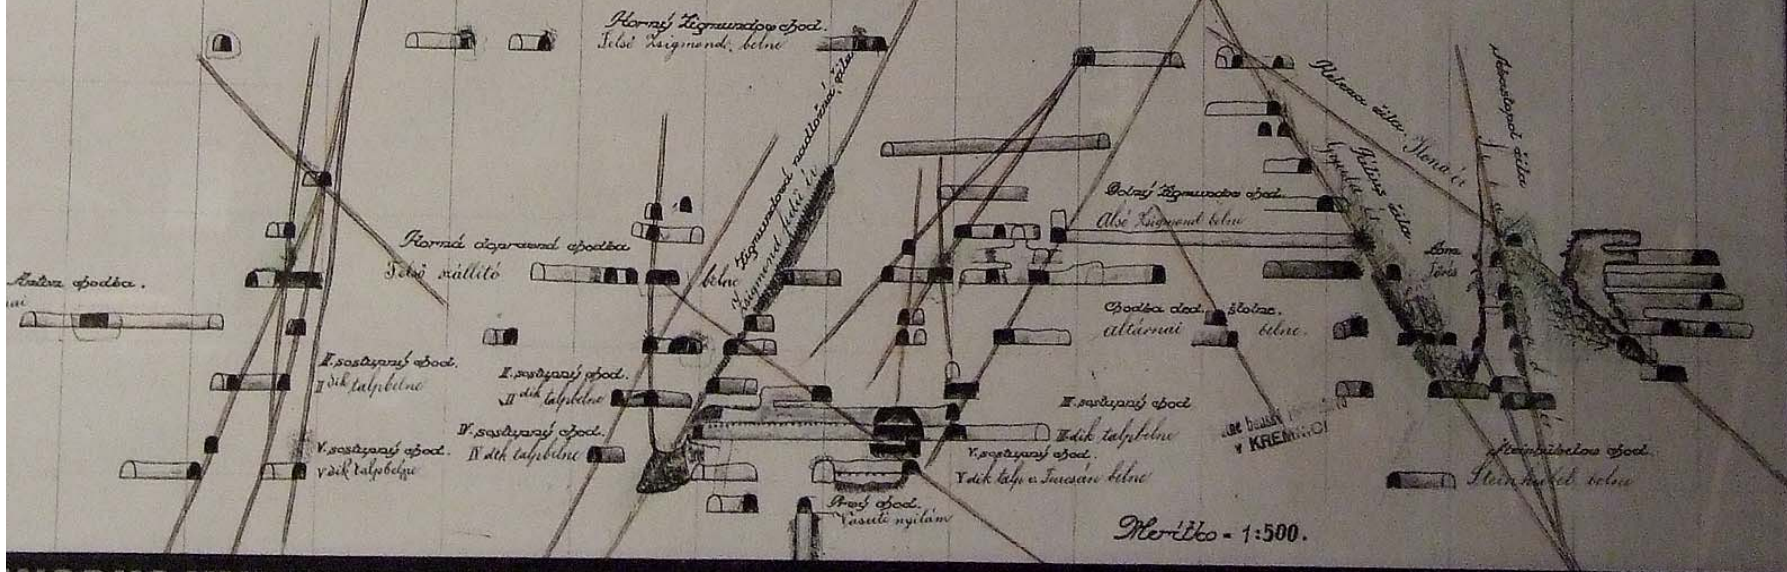 Horný Žigmundov chod.
Felső Zsigmond. belne
Žigmundova nadložná žila
Zsigmond fedü ér
Helena žila. Ilona ér
Július žila
Gyula ér
Sevastopol žila
Dolný Žigmundov chod.
Alsó Zsigmond belne
Horná dopravná chodba
Felső szállító belne
chodba.
Chodba ded. štolne.
altárnai belne.
II. sostupný chod.
II dik talpbelne
II. sostupný chod.
II dik talpbelne
III. sostupný chod
III dik talpbelne
IV. sostupný chod.
IV dik talpbelne
V. sostupný chod.
V dik talpbelne
V. sostupný chod.
V dik talp v. Turcsán belne
v KREMNICI
Steinhübelov chod.
Steinhübel belne
Prvý chod.
Vasuti nyilám
Merítko - 1:500.